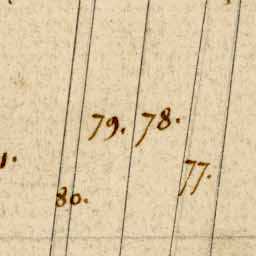 79. 78.
1.
77.
80.